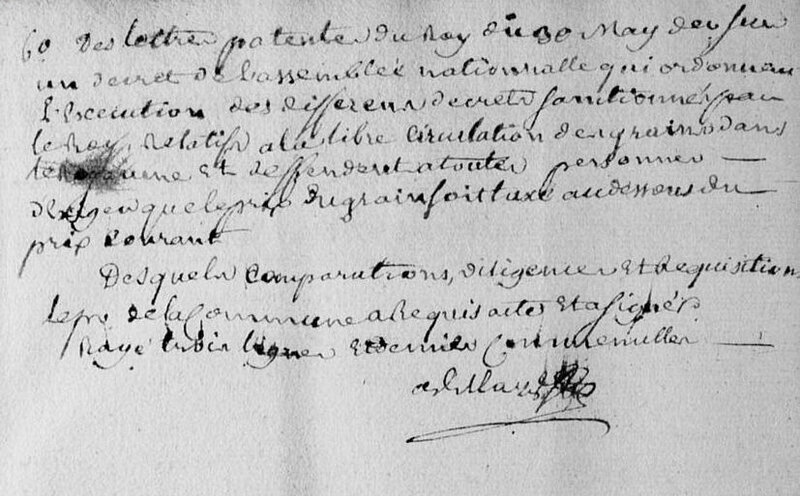 6o Des lettres patentes du Roy du 30 May der sur
un decret de l'assemblée nationnalle qui ordonne
l'Execution des differens decrets sanctionnés par
le Roy, Relatifs a la libre circulation des grains dans
le Royaume Et deffendent a toutes personnes —
d'Exiger que le prix du grain soit taxé au dessous du
prix Courant
Desquels Comparutions, diligences Et Requisitions
le pr de la Commune a Requis acte Et a signé
Rayé trois lignes Et demies Comme nulles —